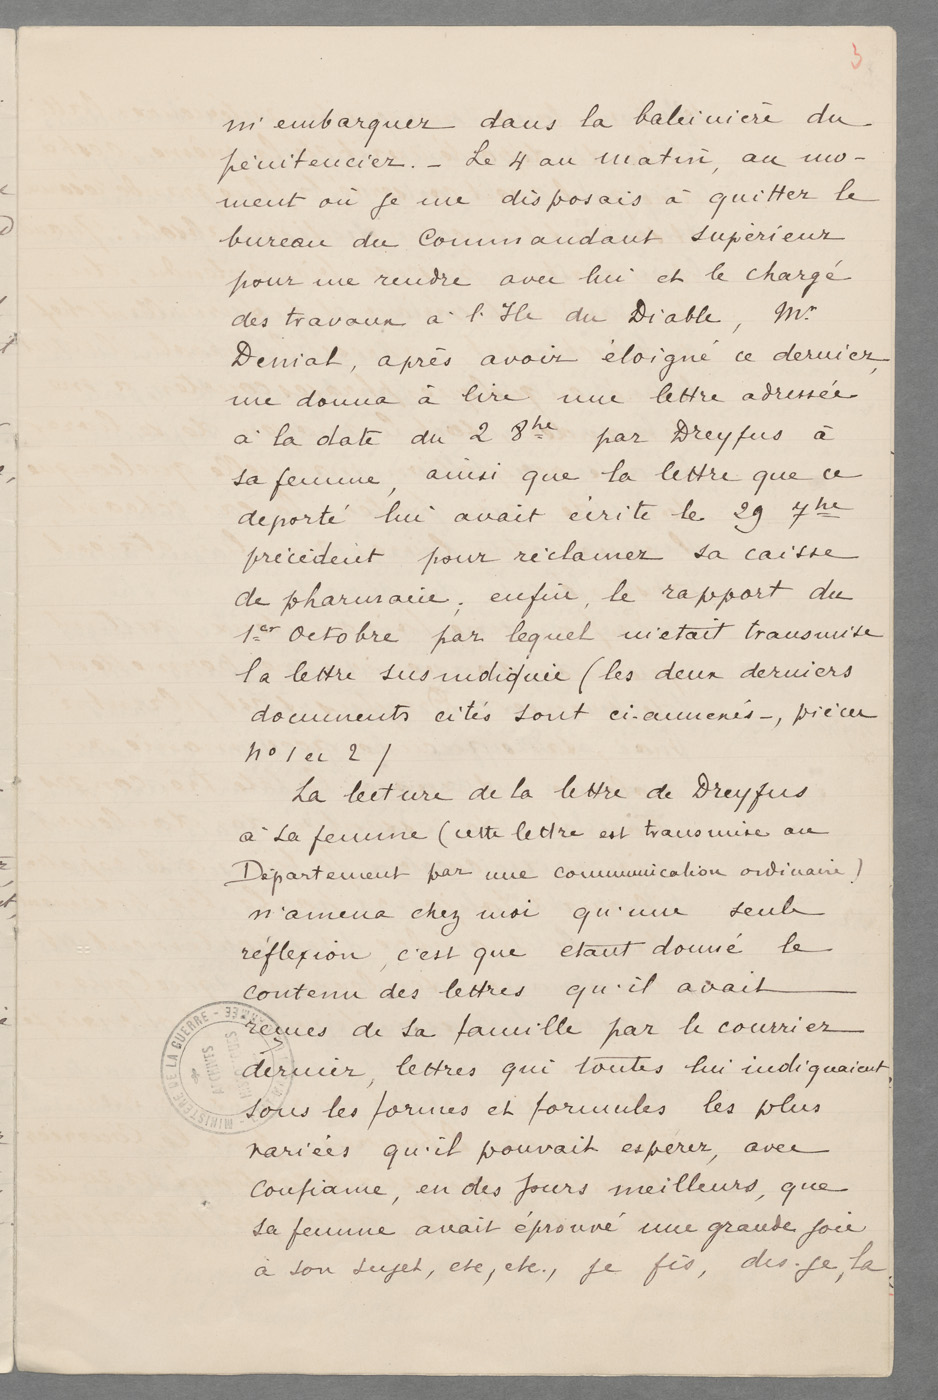 3
m'embarquer dans la baleinière du
pénitencier. - Le 4 au matin, au mo-
ment où je me disposais à quitter le
bureau du Commandant Supérieur
pour me rendre avec lui et le chargé
des travaux à l'Ile du Diable, Mr
Deniel, après avoir éloigné ce dernier,
me donna à lire une lettre adressée
à la date du 2 8bre par Dreyfus à
sa femme, ainsi que la lettre que ce
déporté lui avait écrite le 29 7bre
précédent pour réclamer sa caisse
de pharmacie, enfin, le rapport du
1er Octobre par lequel m'était transmise
la lettre susindiquée (les deux derniers
documents cités sont ci-annexés -, pièces
No 1 et 2)
La lecture de la lettre de Dreyfus
à sa femme (cette lettre est transmise au
Département par une communication ordinaire)
n'amena chez moi qu'une seule
réflexion, c'est que étant donné le
contenu des lettres qu'il avait
reçues de sa famille par le courrier
dernier, lettres qui toutes lui indiquaient
sous les formes et formules les plus
variées qu'il pouvait espérer, avec
confiance, en des jours meilleurs, que
sa femme avait éprouvé une grande joie
à son sujet, etc, etc., je fis, dis-je, la
MINISTÈRE DE LA GUERRE